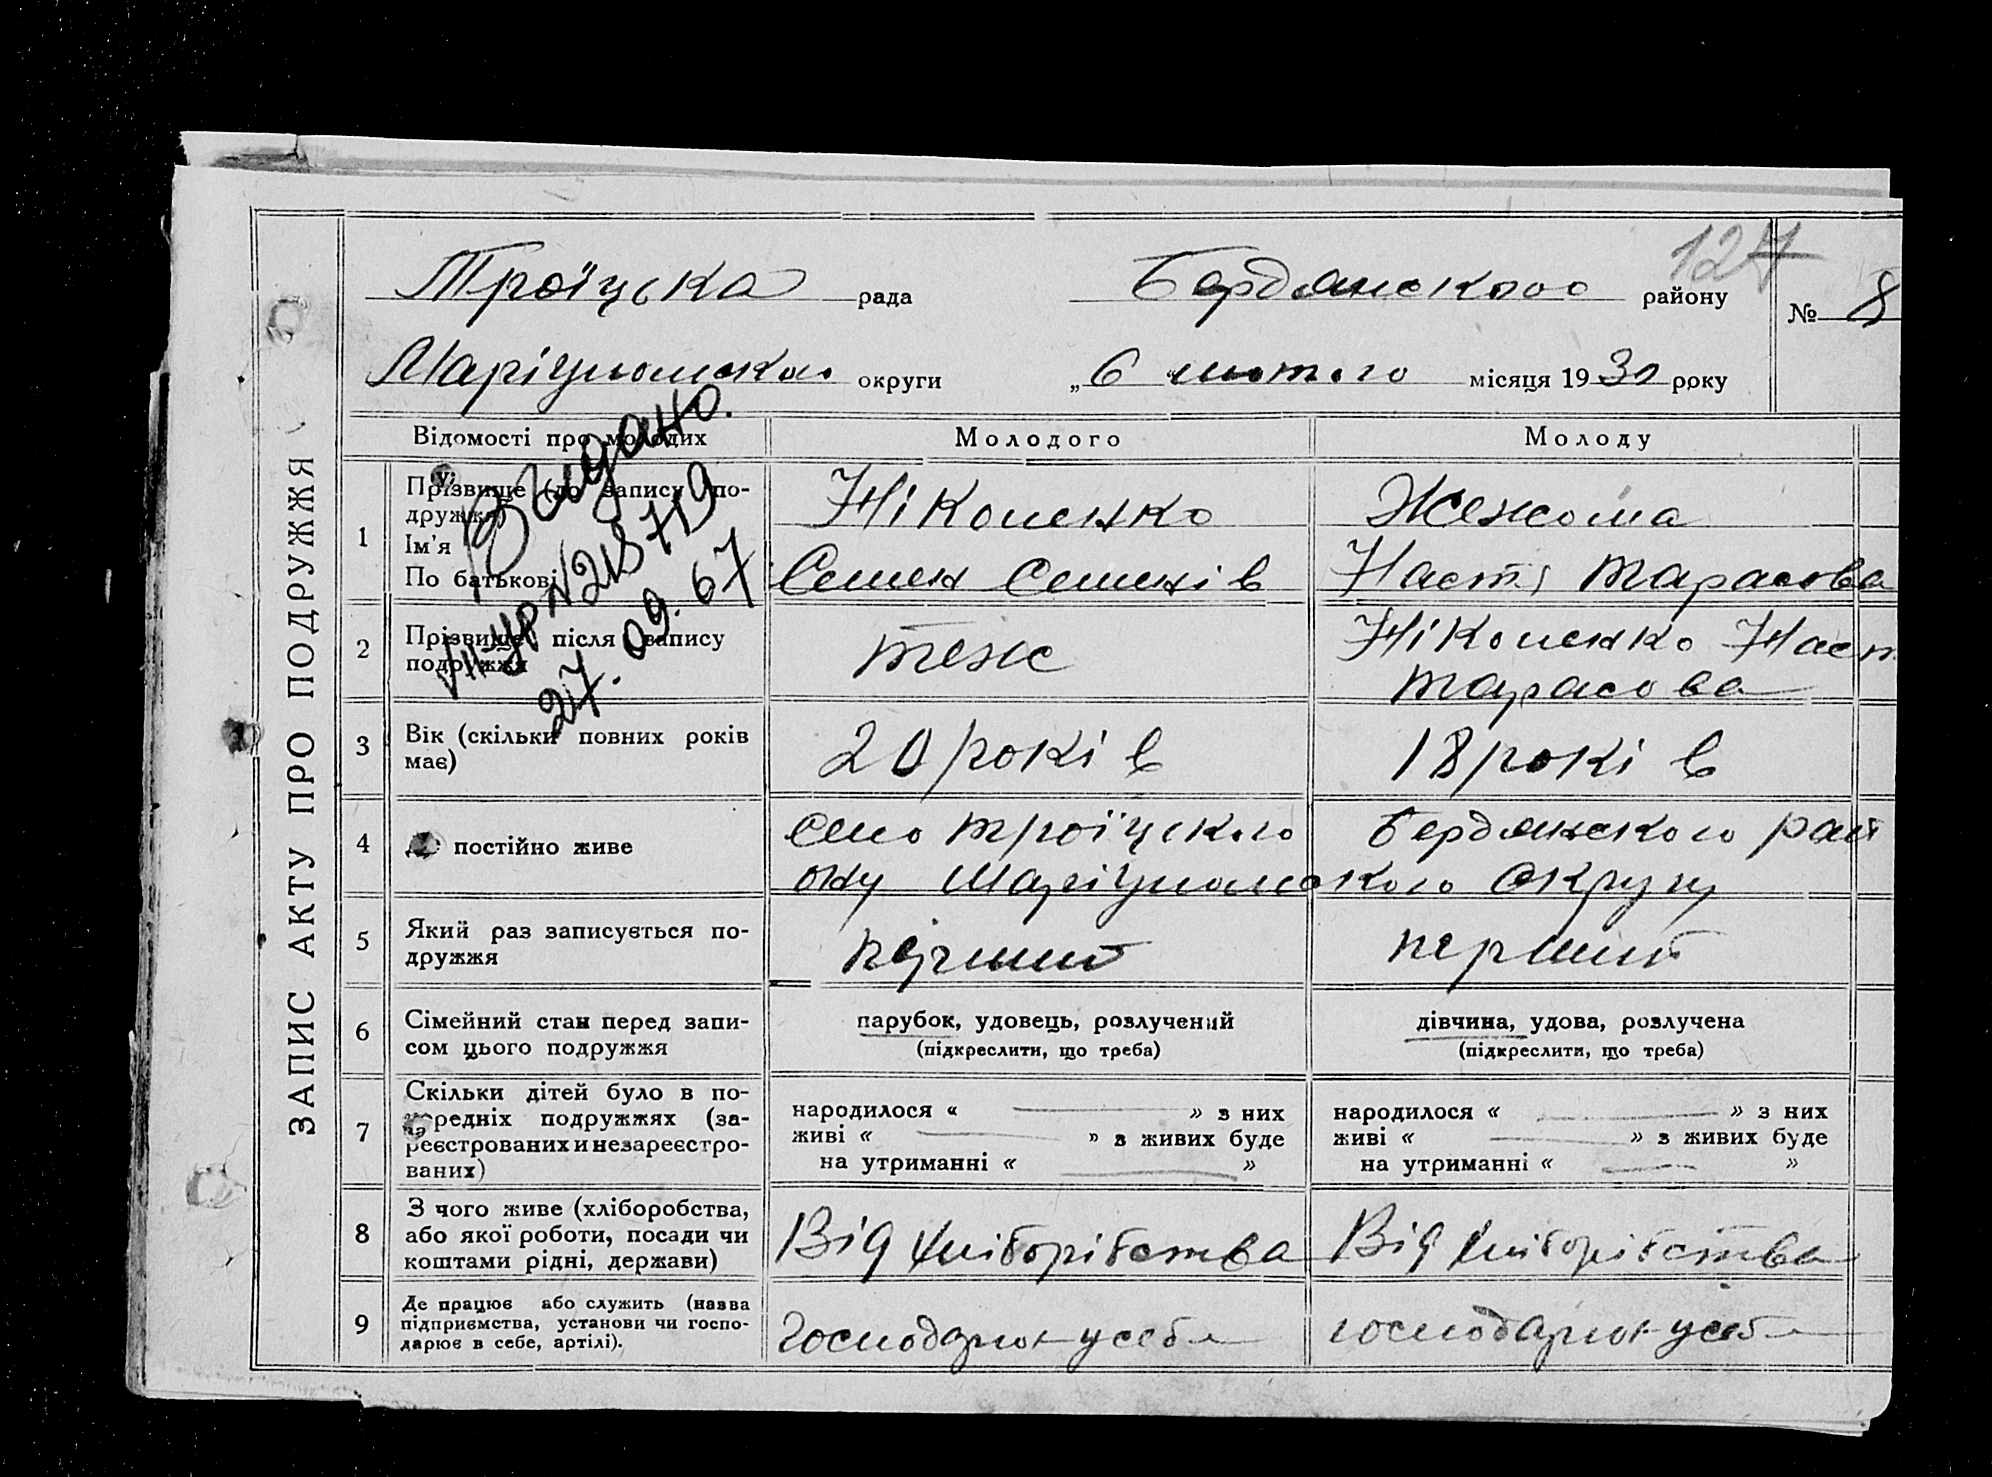 ЗАПИС АКТУ ПРО ПОДРУЖЖЯ
127
Троїцька рада Бердянського району № 8
Маріупольської округи „ 6 “ лютого місяця 1930 року
Відомості про молодих Молодого Молоду
Видано.
№ 218719
27.09.67
1 Прізвище (до запису по-
дружжя)
Ім'я
По батькові
Ніколенко
Семен Семенів
Настя Тарасова
2 Прізвище після запису
подружжя
теж
Ніколенко Наст
Тарасова
3 Вік (скільки повних років
має)
20 років
18 років
4 постійно живе
Село Троїцького Бердянського рай
ону Маріупольського Округу
5 Який раз записується по-
дружжя
перший
перший
6 Сімейний стан перед запи-
сом цього подружжя
парубок, удовець, розлучений
(підкреслити, що треба)
дівчина, удова, розлучена
(підкреслити, що треба)
7 Скільки дітей було в по-
передніх подружжях (за-
реєстрованих и незареєстро-
ваних)
народилося « » з них
живі « » з живих буде
на утриманні « »
народилося « » з них
живі « » з живих буде
на утриманні « »
8 З чого живе (хліборобства,
або якої роботи, посади чи
коштами рідні, держави)
Від хліборібства
Від хліборібства
9 Де працює або служить (назва
підприємства, установи чи госпо-
дарює в себе, артілі).
господарює у себе
господарює у себе